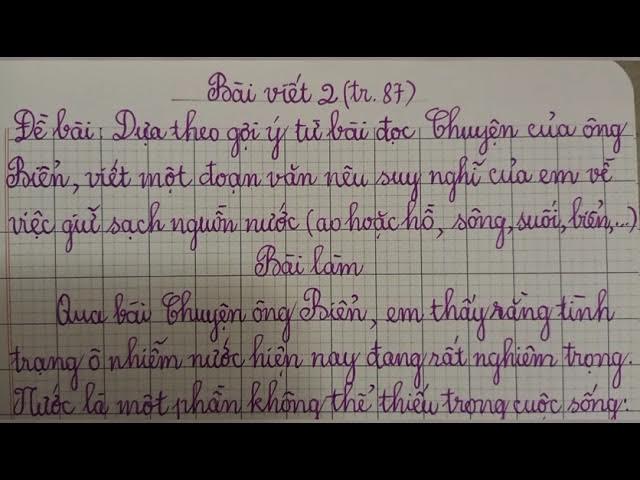 Bài viết 2 (tr. 87)
Đề bài: Dựa theo gợi ý từ bài đọc Chuyện của ông
Biển, viết một đoạn văn nêu suy nghĩ của em về
việc giữ sạch nguồn nước (ao hoặc hồ, sông, suối, biển,...)
Bài làm
Qua bài Chuyện ông Biển, em thấy rằng tình
trạng ô nhiễm nước hiện nay đang rất nghiêm trọng.
Nước là một phần không thể thiếu trong cuộc sống.